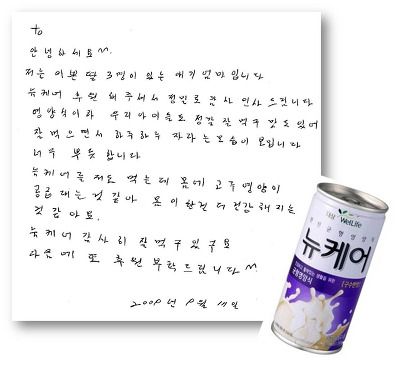 to
안녕하세요^^.
저는 이쁜 딸 3명이 있는 애기엄마입니다
뉴케어 후원 해주셔서 정말로 감사 인사 드립니다
영양식이라 우리아이들도 정말 잘먹구 맛도 있어
잘 먹으면서 하루하루 자라는 모습이 보입니다
너무 뿌듯합니다
뉴케어를 저도 먹는데 몸에 고루영양이
공급 대는것 같아 몸이한결 더 건강해지는
것 같아요.
뉴케어 감사히 잘먹구있구요
다음에 또 후원 부탁드립니다^^.
2009년 9월 11일
대상 WelLife
뉴케어
[구수한맛]
균형영양식